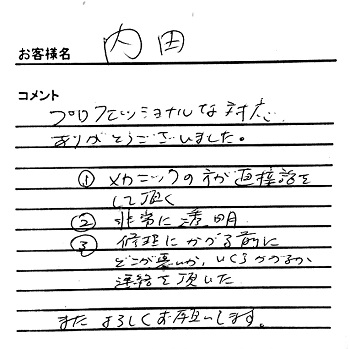 お客様名 内田
コメント
プロフェッショナルな対応
ありがとうございました。
① メカニックの方が直接話を
して頂く
② 非常に透明
③ 修理にかかる前に
どこが悪いか、いくらかかるか
連絡を頂いた
またよろしくお願いします。